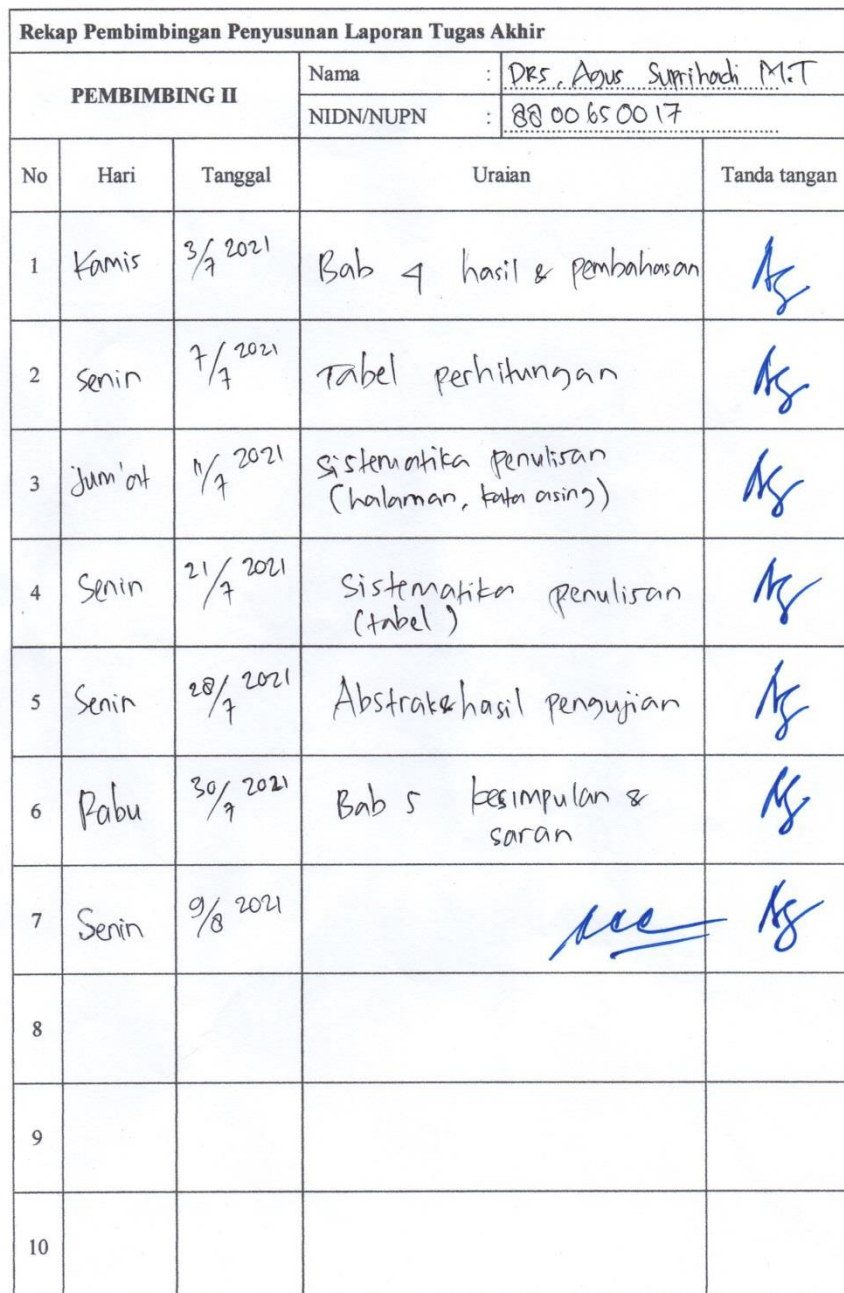 Rekap Pembimbingan Penyusunan Laporan Tugas Akhir
PEMBIMBING II
Nama : DRS, Agus Suprihadi M.T
NIDN/NUPN : 88 00 65 00 17
No Hari Tanggal Uraian Tanda tangan
1 Kamis 3/7 2021 Bab 4 hasil & pembahasan
2 Senin 7/7 2021 Tabel perhitungan
3 Jum'at 11/7 2021 Sistematika penulisan
(halaman, kata asing)
4 Senin 21/7 2021 Sistematika penulisan
(tabel)
5 Senin 28/7 2021 Abstrak & hasil pengujian
6 Rabu 30/7 2021 Bab 5 kesimpulan &
saran
7 Senin 9/8 2021 acc
8
9
10